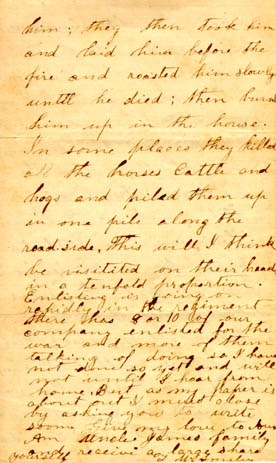 him; they then took him
and laid him before the
fire and roasted him slowly
until he died; then burnt
him up in the house.
In some places they killed
all the horses Cattle and
hogs and piled them up
in one pile along the
road side. This will I think
be visitited on their head
in a tenfold proportion.
Enlisting is going on
rapidly in the regiment
there has 8 or 10 of our
company enlisted for the
war and more of them
talking of doing so, I have
not done so yet and will
not until I hear from
home. But as my paper is
about out I must close
by asking you to write
soon. Give my love to
An Uncle James family
and receive a large share
yourself